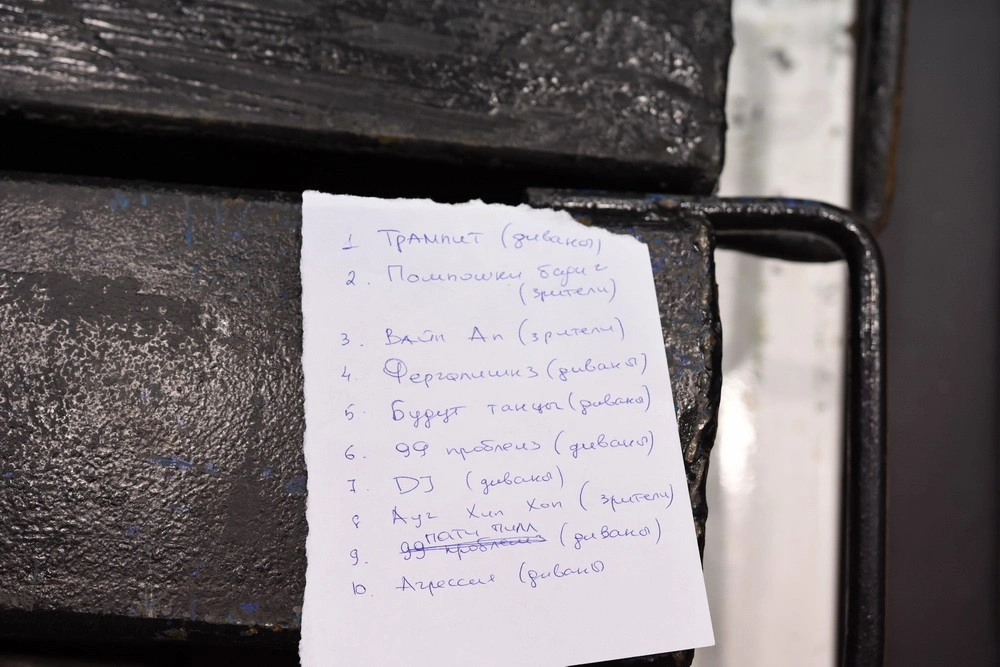 1 Трампит (диваны)
2. Помпошки бади г
(зрители)
3. Вайп Ап (зрители)
4 Фергалишкз (диваны)
5 Будут танцы (диваны)
6. 99 проблемз (диваны)
7. DJ (диваны)
8 Ауг Хип Хоп (зрители)
пати пилл
9. 99 проблемз (диваны)
10. Агрессия (диваны